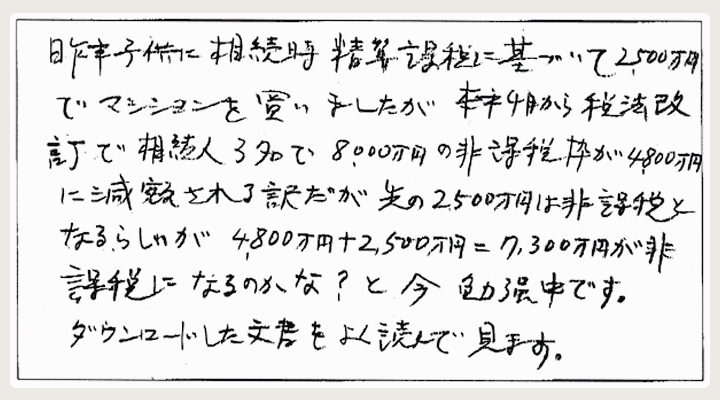 昨年子供に相続時精算課税に基づいて2,500万円
でマンションを買いましたが本年4月から税法改
訂で相続人3名で8,000万円の非課税枠が4,800万円
に減額される訳だが先の2,500万円は非課税と
なるらしいが4,800万円+2,500万円=7,300万円が非
課税になるのかな?と今勉強中です。
ダウンロードした文書をよく読んで見ます。